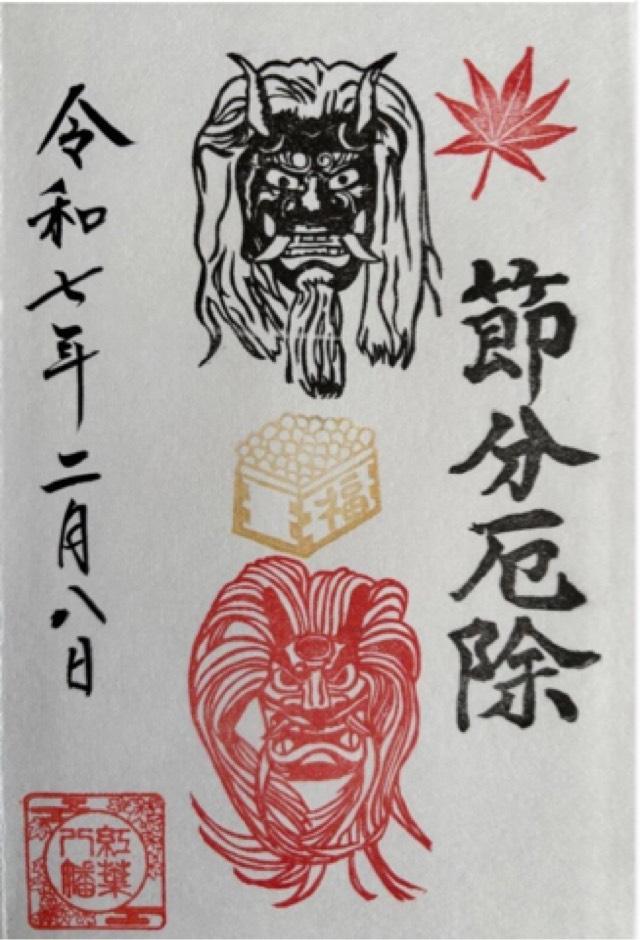 節分厄除
福
令和七年二月八日
紅葉
八幡